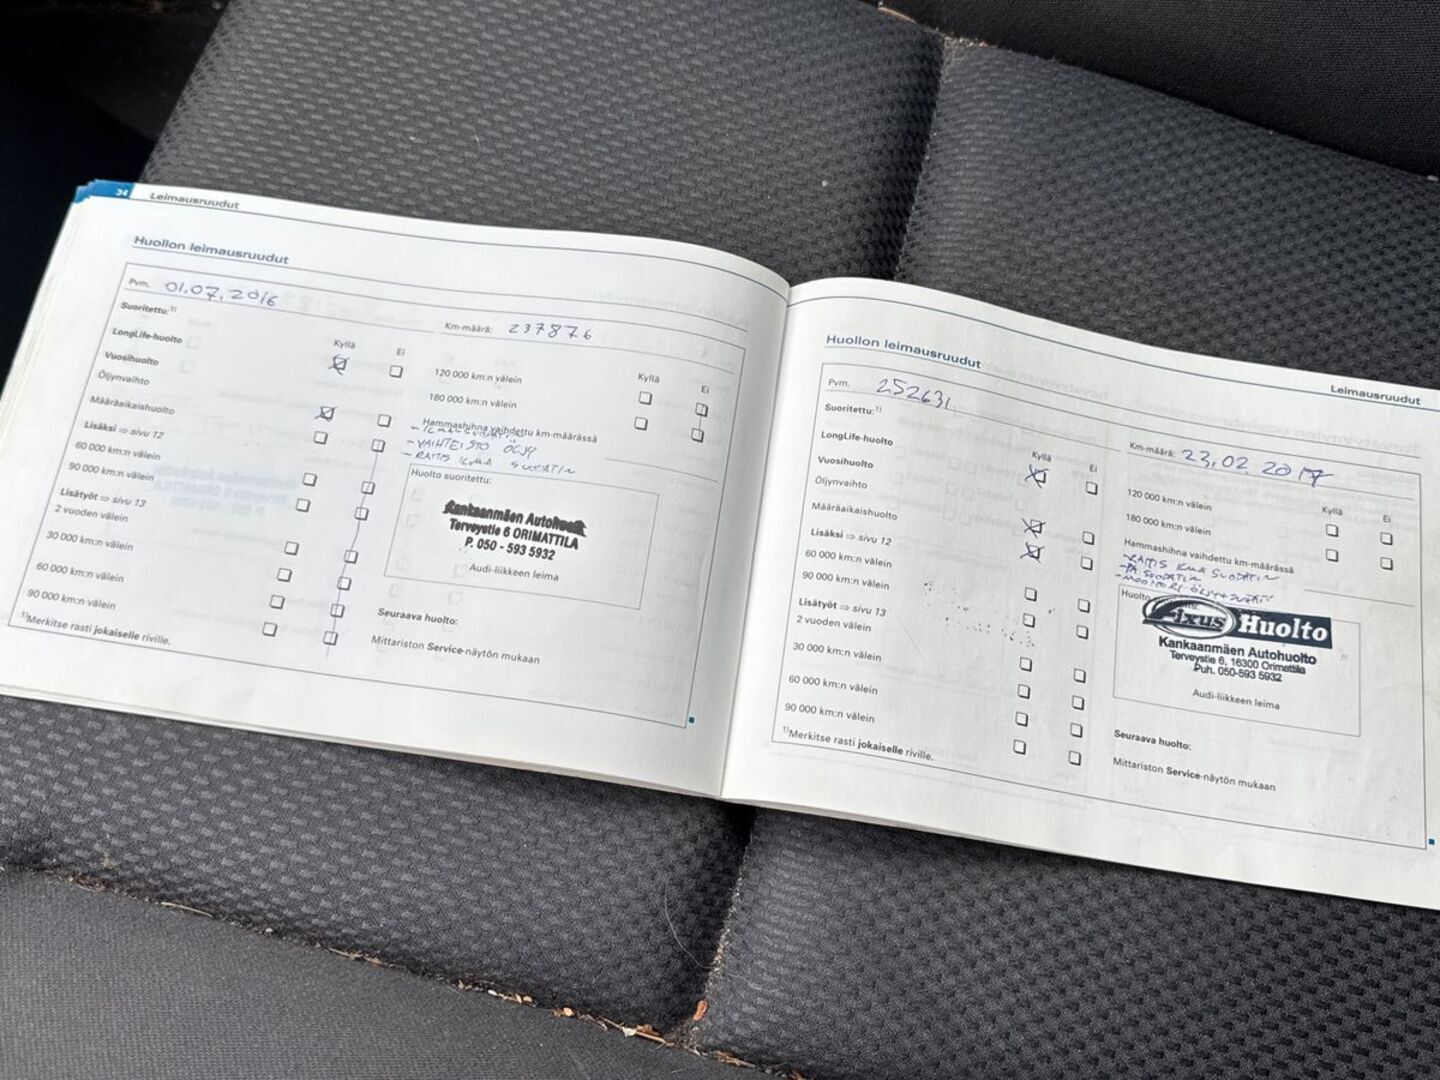 34
Leimausruudut
Huollon leimausruudut
Pvm. 01.07.2016
Km-määrä: 237876
Suoritettu:¹⁾
Kyllä Ei
LongLife-huolto
Vuosihuolto
Öljynvaihto
Määräaikaishuolto
Lisäksi ⇒ sivu 12
60 000 km:n välein
90 000 km:n välein
Lisätyöt ⇒ sivu 13
2 vuoden välein
30 000 km:n välein
60 000 km:n välein
90 000 km:n välein
¹⁾Merkitse rasti jokaiselle riville.
Kyllä Ei
120 000 km:n välein
180 000 km:n välein
Hammashihna vaihdettu km-määrässä
- ILMANSUODATIN
- VAIHTEISTO ÖLJY
- RAITIS ILMA SUODATIN
Huolto suoritettu:
Kankaanmäen Autohuolto
Terveystie 6 ORIMATTILA
P. 050 - 593 5932
Audi-liikkeen leima
Seuraava huolto:
Mittariston Service-näytön mukaan
Leimausruudut
Huollon leimausruudut
Pvm. 252631
Km-määrä: 23.02.2017
Suoritettu:¹⁾
Kyllä Ei
LongLife-huolto
Vuosihuolto
Öljynvaihto
Määräaikaishuolto
Lisäksi ⇒ sivu 12
60 000 km:n välein
90 000 km:n välein
Lisätyöt ⇒ sivu 13
2 vuoden välein
30 000 km:n välein
60 000 km:n välein
90 000 km:n välein
¹⁾Merkitse rasti jokaiselle riville.
Kyllä Ei
120 000 km:n välein
180 000 km:n välein
Hammashihna vaihdettu km-määrässä
- RAITIS ILMA SUODATIN
- PA.SUODATIN
Huolto
Fixus Huolto
Kankaanmäen Autohuolto
Terveystie 6, 16300 Orimattila
Puh. 050-593 5932
Audi-liikkeen leima
Seuraava huolto:
Mittariston Service-näytön mukaan